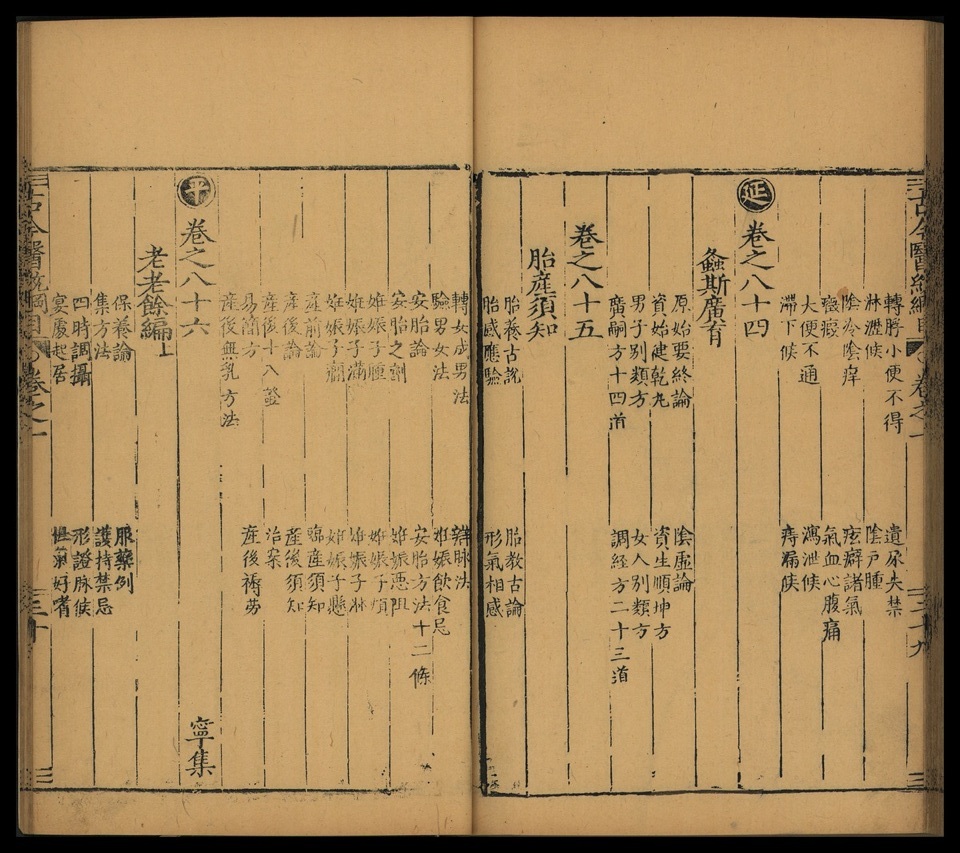 轉脬小便不得　遺尿失禁
淋瀝候　陰戶腫
陰冷陰痒　痃癖諸氣
癥瘕　氣血心腹痛
大便不通　瀉泄候
滯下候　痔漏候
延　卷之八十四
螽斯廣育
原始要終論　陰虛論
資始健乾丸　資生順坤方
男子别類方　女人别類方
廣嗣方十四首　調經方二十三道
卷之八十五
胎產須知
胎養古說　胎教古論
胎感應驗　形氣相感
轉女成男法　辨脉法
驗男女法　妊娠飲食忌
安胎論　安胎方法十二條
安胎之劑　妊娠惡阻
妊娠子腫　妊娠子煩
妊娠子滿　妊娠子淋
妊娠子癇　妊娠子懸
產前論　臨產須知
產後論　產後須知
產後十八證　治案
易簡方　產後褥勞
產後無乳方法
平　卷之八十六　寧集
老老餘編上
保養論　服藥例
集方法　護持禁忌
四時調攝　形證脉候
宴處起居　性氣好嗜
古今醫統綱目　卷之一
二十九
三十